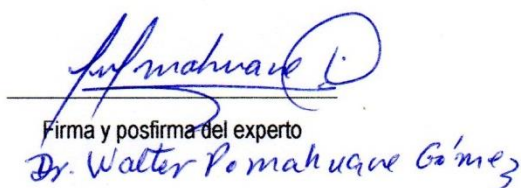 Firma y posfirma del experto
Dr. Walter Pomahuacre Gómez